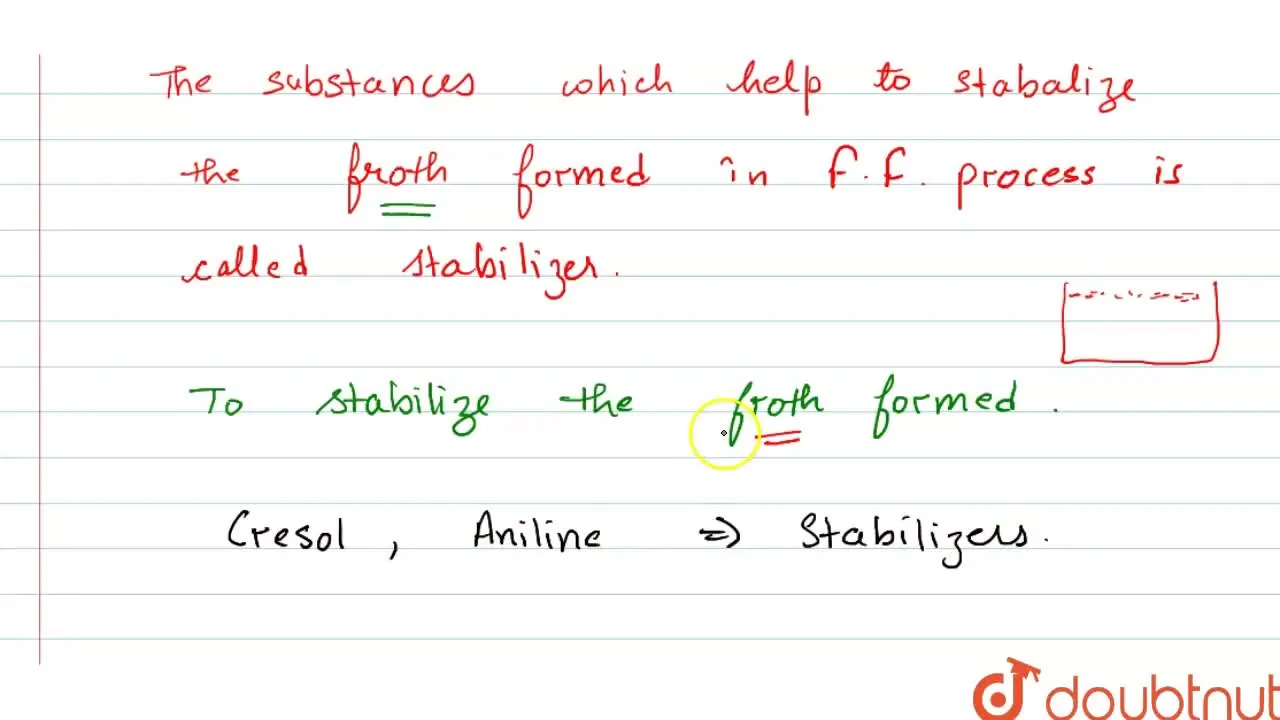 The substances which help to stabalize
the froth formed in f.f. process is
called stabilizer.
To stabilize the froth formed.
Cresol, Aniline ⇒ Stabilizers.
doubtnut